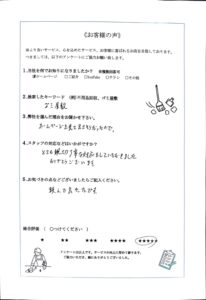 《お客様の声》
より良いサービス、心を込めたサービス、お客様に喜ばれるお店を目指しております。
つきましては、以下のアンケートにご協力お願い致します。
1.当社を何でお知りになりましたか？ ※複数回答可
ホームページ □ご紹介 □YouTube □チラシ □その他
2.検索したキーワード (例)不用品回収、ゴミ屋敷
ゴミ屋敷
3.弊社を選んだ理由をお聞かせ下さい。
ホームページを見て良さそうだったので。
4.スタッフの対応などはいかがですか？
とても親切丁寧な対応をしていただきました
ありがとうございます。
5.お気づきの点などございましたらご記入ください。
頼んで良かったです
総合評価 （ ○つけてください ）
★ ★★ ★★★ ★★★★ ★★★★★
アンケートは以上です。
ご協力いただき、誠にありがとうございました。